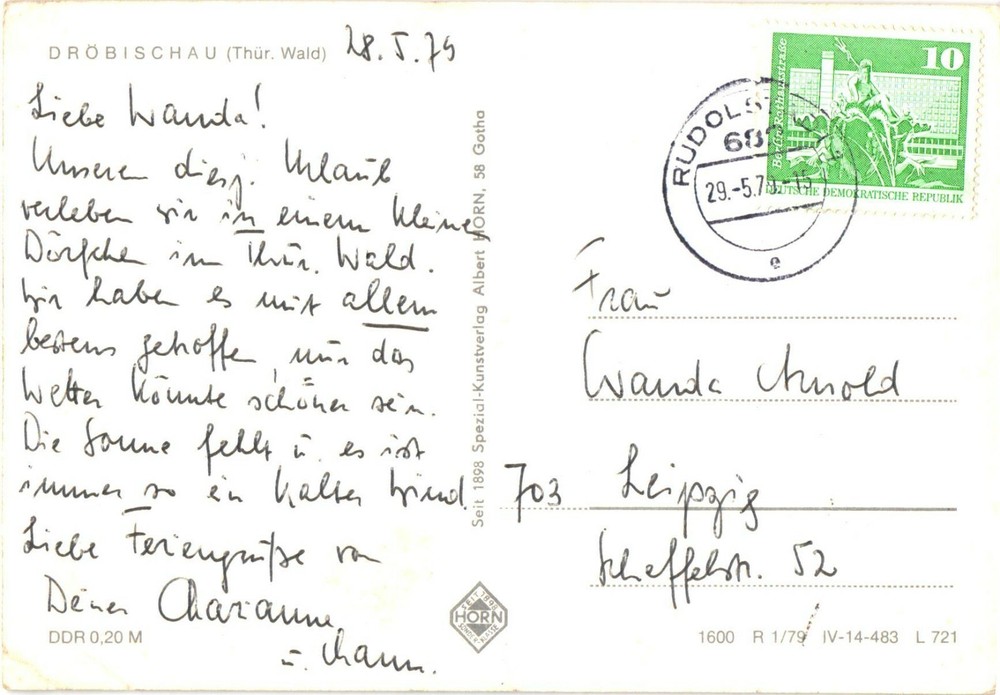 DRÖBISCHAU (Thür. Wald)
28.5.79
Liebe Wanda!
Unseren diesj. Urlaub
verleben wir in einem kleinen
Dörfchen im Thür. Wald.
Wir haben es mit allem
bestens getroffen, nur das
Wetter könnte schöner sein.
Die Sonne fehlt u. es ist
immer so ein kalter Wind.
Liebe Feriengrüße von
Deiner Marianne
u. Mann.
DDR 0,20 M
Seit 1898 Spezial-Kunstverlag Albert HORN, 58 Gotha
SEIT 1898
HORN
10
Berlin, Rathausstraße
DEUTSCHE DEMOKRATISCHE REPUBLIK
RUDOLST
682
29.-5.79.-15
e
Frau
Wanda Arnold
703 Leipzig
Scheffelstr. 52
1600 R 1/79 IV-14-483 L 721